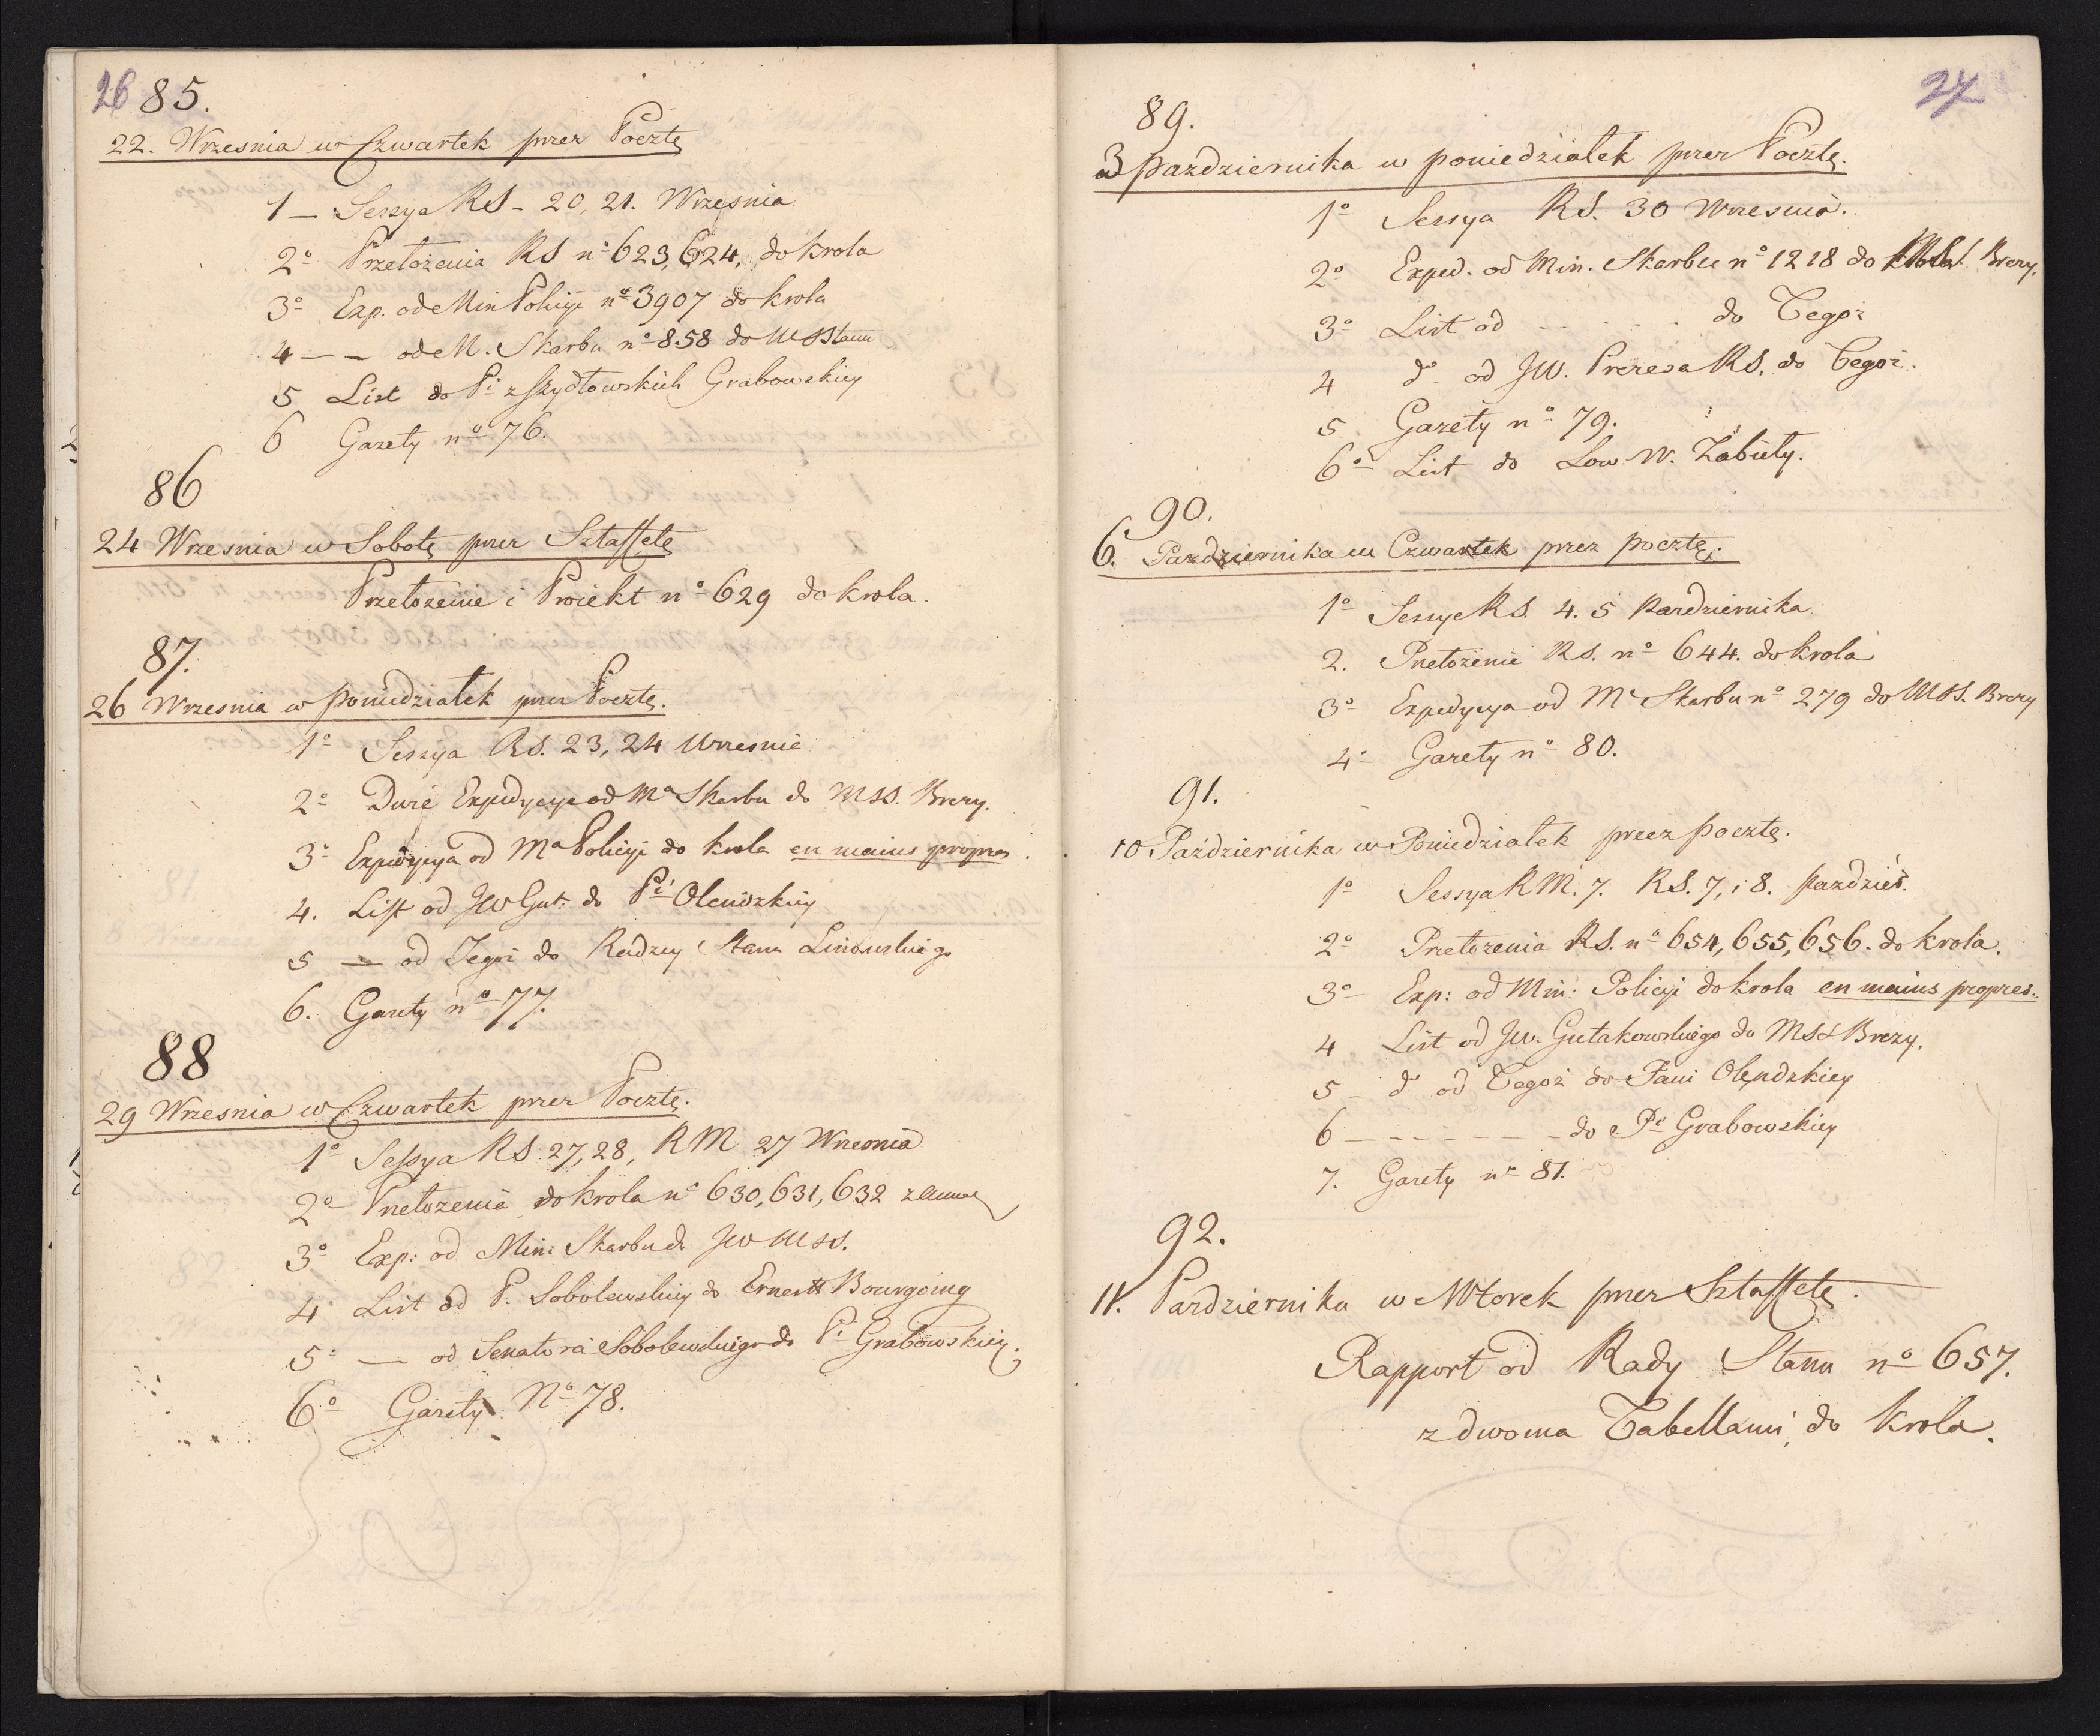 26 85.
22. Wrzesnia w Czwartek przez Pocztę
1 — Sessya RS – 20, 21. Wrzesnia
2o Przełożenia RS no 623, 624, do krola
3o Exp. od Min Policyi no 3907 do krola
4 — — od M. Skarbu no 858 do MSStanu
5 List do Pi z Szydłowskich Grabowskiey
6 Gazety no 76.
86
24 Wrzesnia w Sobotę przez Sztaffetę
Przełozenie i Proiekt no 629 do krola.
87.
26 Wrzesnia w poniedziałek przez Pocztę.
1o Sessya RS. 23, 24 Wrzesnia
2o Dwie Expedycye od Ma Skarbu do MSS. Brezy.
3o Expedycya od Ma Policyi do krola en mains propres.
4. List od JW Gut: do Pi Olendzkiey
5 — od Tegoż do Radzcy Stanu Linowskiego
6. Gazety no 77.
88
29 Wrzesnia w Czwartek przez Pocztę.
1o Sessya RS 27, 28, RM 27 Wrzesnia
2o Przełozenia do krola no 630, 631, 632
3o Exp: od Min: Skarbu do JW MSS.
4 List od P. Sobolewskiey do Ernest Bourgoing
5o — od Senatora Sobolewskiego do Pi Grabowskiey.
6o Gazety No 78.
27
89.
3 pazdziernika w poniedziałek przez Pocztę.
1o Sessya RS. 30 Wrzesnia.
2o Exped. od Min. Skarbu no 1218 do Brezy.
3o List od - - - - do Tegoż
4 do od JW. Prezesa RS. do Tegoż.
5 Gazety no 79.
6o List do Low. W. Zabiełły.
90.
6. Pazdziernika w Czwartek przez pocztę.
1o Sessye RS. 4. 5 Pazdziernika
2. Przełożenie RS. no 644. do krola
3o Expedycya od Mi Skarbu no 279 do MSS. Brezy
4o Gazety no 80.
91.
10 Października w Poniedziałek przez pocztę.
1o Sessya RM. 7. RS. 7, i 8. pazdzier.
2o Przełozenia RS. no 654, 655, 656. do krola.
3o Exp: od Min: Policyi do krola en mains propres.
4 List od JW. Gutakowskiego do MSS Brezy.
5 do od Tegoż do Pani Olendzkiey
6 — - - - - - - do Pi Grabowskiey
7. Gazety no 81.
92.
11. Pazdziernika w Wtorek przez Sztaffetę.
Rapport od Rady Stanu no 657.
z dwoma Tabellami do krola.